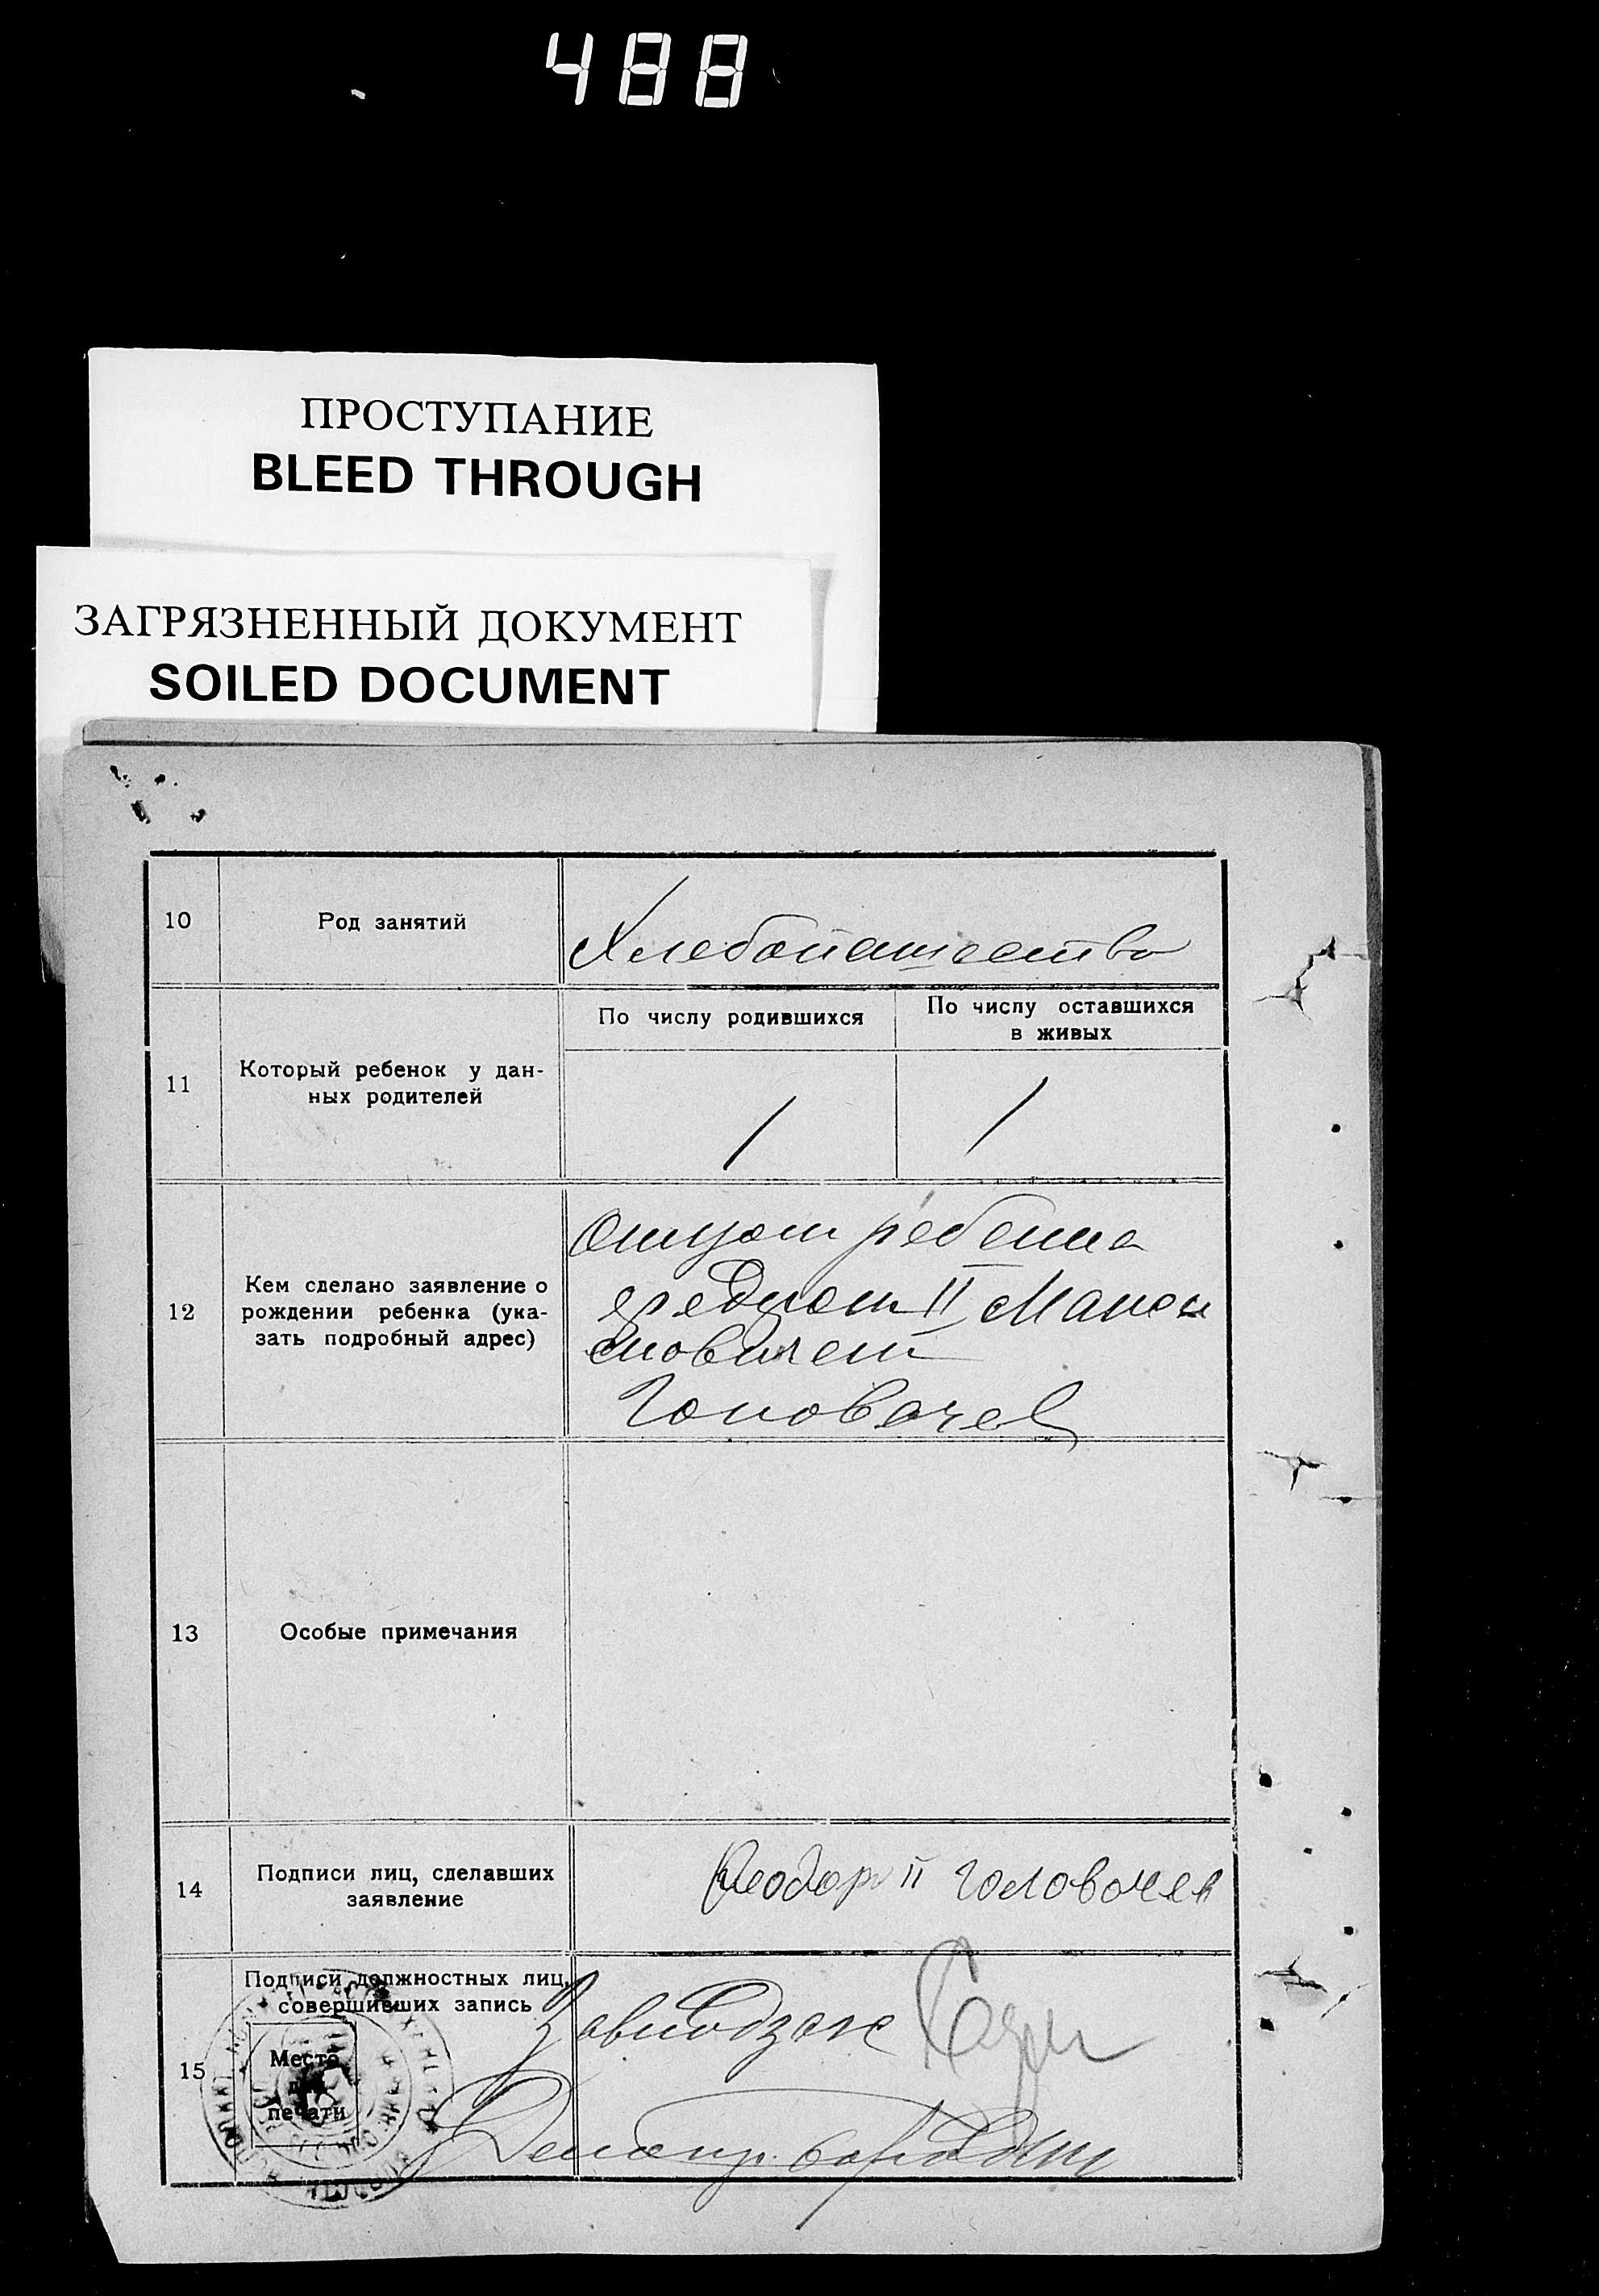 488
ПРОСТУПАНИЕ
BLEED THROUGH
ЗАГРЯЗНЕННЫЙ ДОКУМЕНТ
SOILED DOCUMENT
10
Род занятий
Хлебопашество
11
Который ребенок у дан-
ных родителей
По числу родившихся
По числу оставшихся
в живых
1
1
12
Кем сделано заявление о
рождении ребенка (ука-
зать подробный адрес)
Отцом ребенка
II
Головачев
13
Особые примечания
14
Подписи лиц, сделавших
заявление
Феодор II Головачев
15
Подписи должностных лиц,
совершивших запись
Место
для
печати
Завподзагс
Делопр.